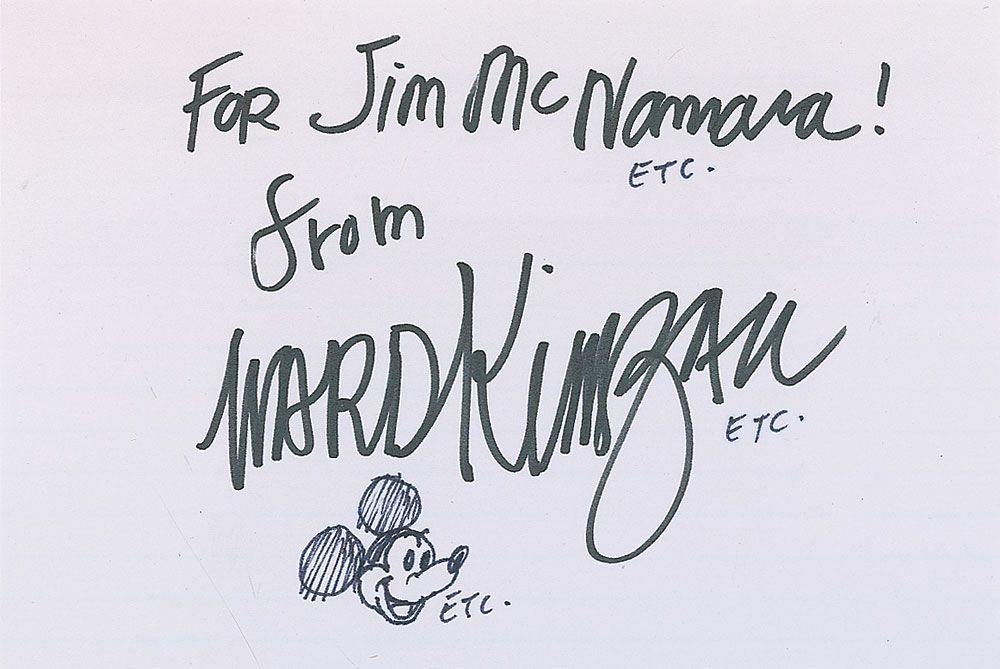 FOR Jim McNamara!
ETC.
from
WARD KIMBALL
ETC.
ETC.